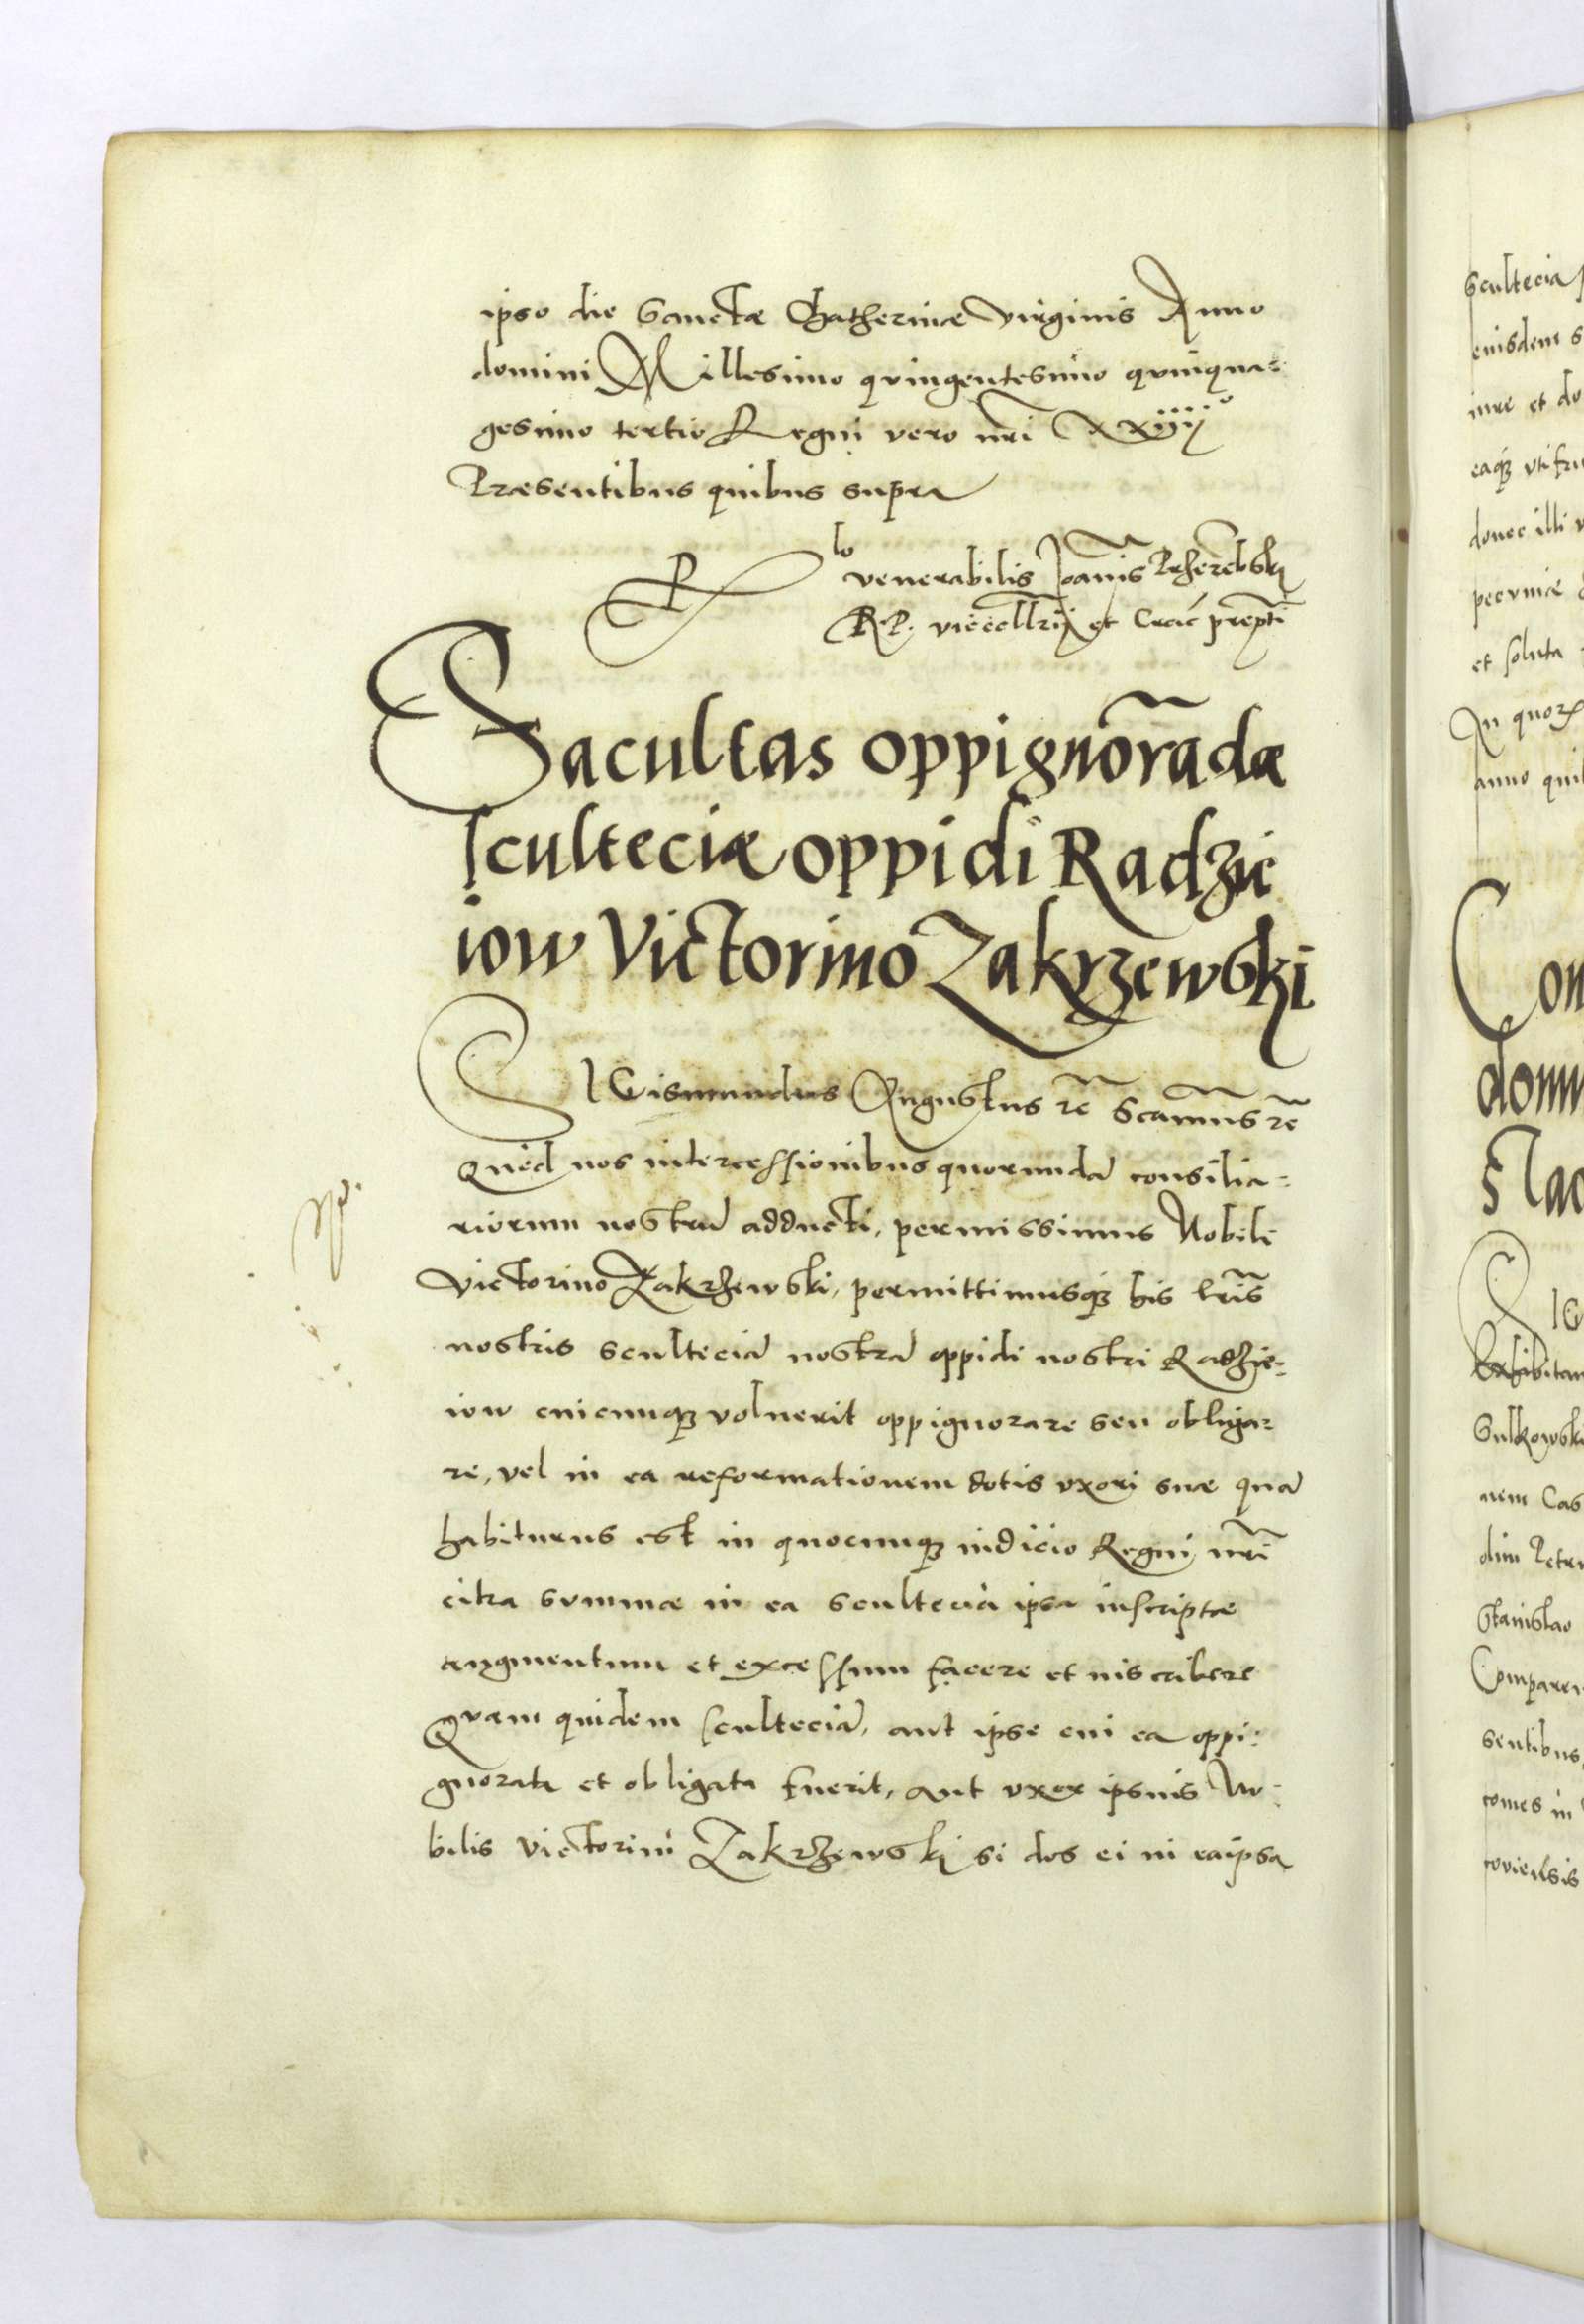 ipso die Sanctæ Chatherinæ Virginis Anno
domini Millesimo quingentesimo quinqua=
gesimo tertio Regni vero nr̃i XXiiij°
Præsentibus quibus supra
Rlo venerabilis Joañis Przerẽbski
R. P. vicecellrij et Crac̃ prepti
Facultas oppignorãdæ
scultetiæ oppidi Radzie
iow Victorino Zakrzewski
SIGismundus Augustus rẽ Scamus rẽ
Quod nos intercessionibus quorundã consilia=
riorum nostrũ adducti, permissimus Nobili
Victorino Zakrzewski, permittimusq3 his lr̃is
nostris sculteciã nostrã oppidi nostri Radzie=
iow cuicunq3 voluerit oppignorare seu obliga=
re, vel in ea reformationem dotis vxori suæ quã
habiturus est in quocunq3 iudicio Regni nr̃i
citra summæ in ea sculteciã ipsa inscriptæ
augmentum et excessum facere et inscribere
Quam quidem sculteciã, aut ipse cui ea oppi=
gnorata et obligata fuerit, aut vxor ipsius No=
bilis Victorini Zakrzewski si dos ei in eaipsa
scultecia
eiusdem s
iure et do
eaq3 vtifru
donec illi
pecuniæ
et soluta
In quor
anno qui
Con
domi
Stac
SIG
Exhibitam
Sulkowski
nem Cas
olim Petr
Stanislao
Comparen
sentibus
comes in
coviensis